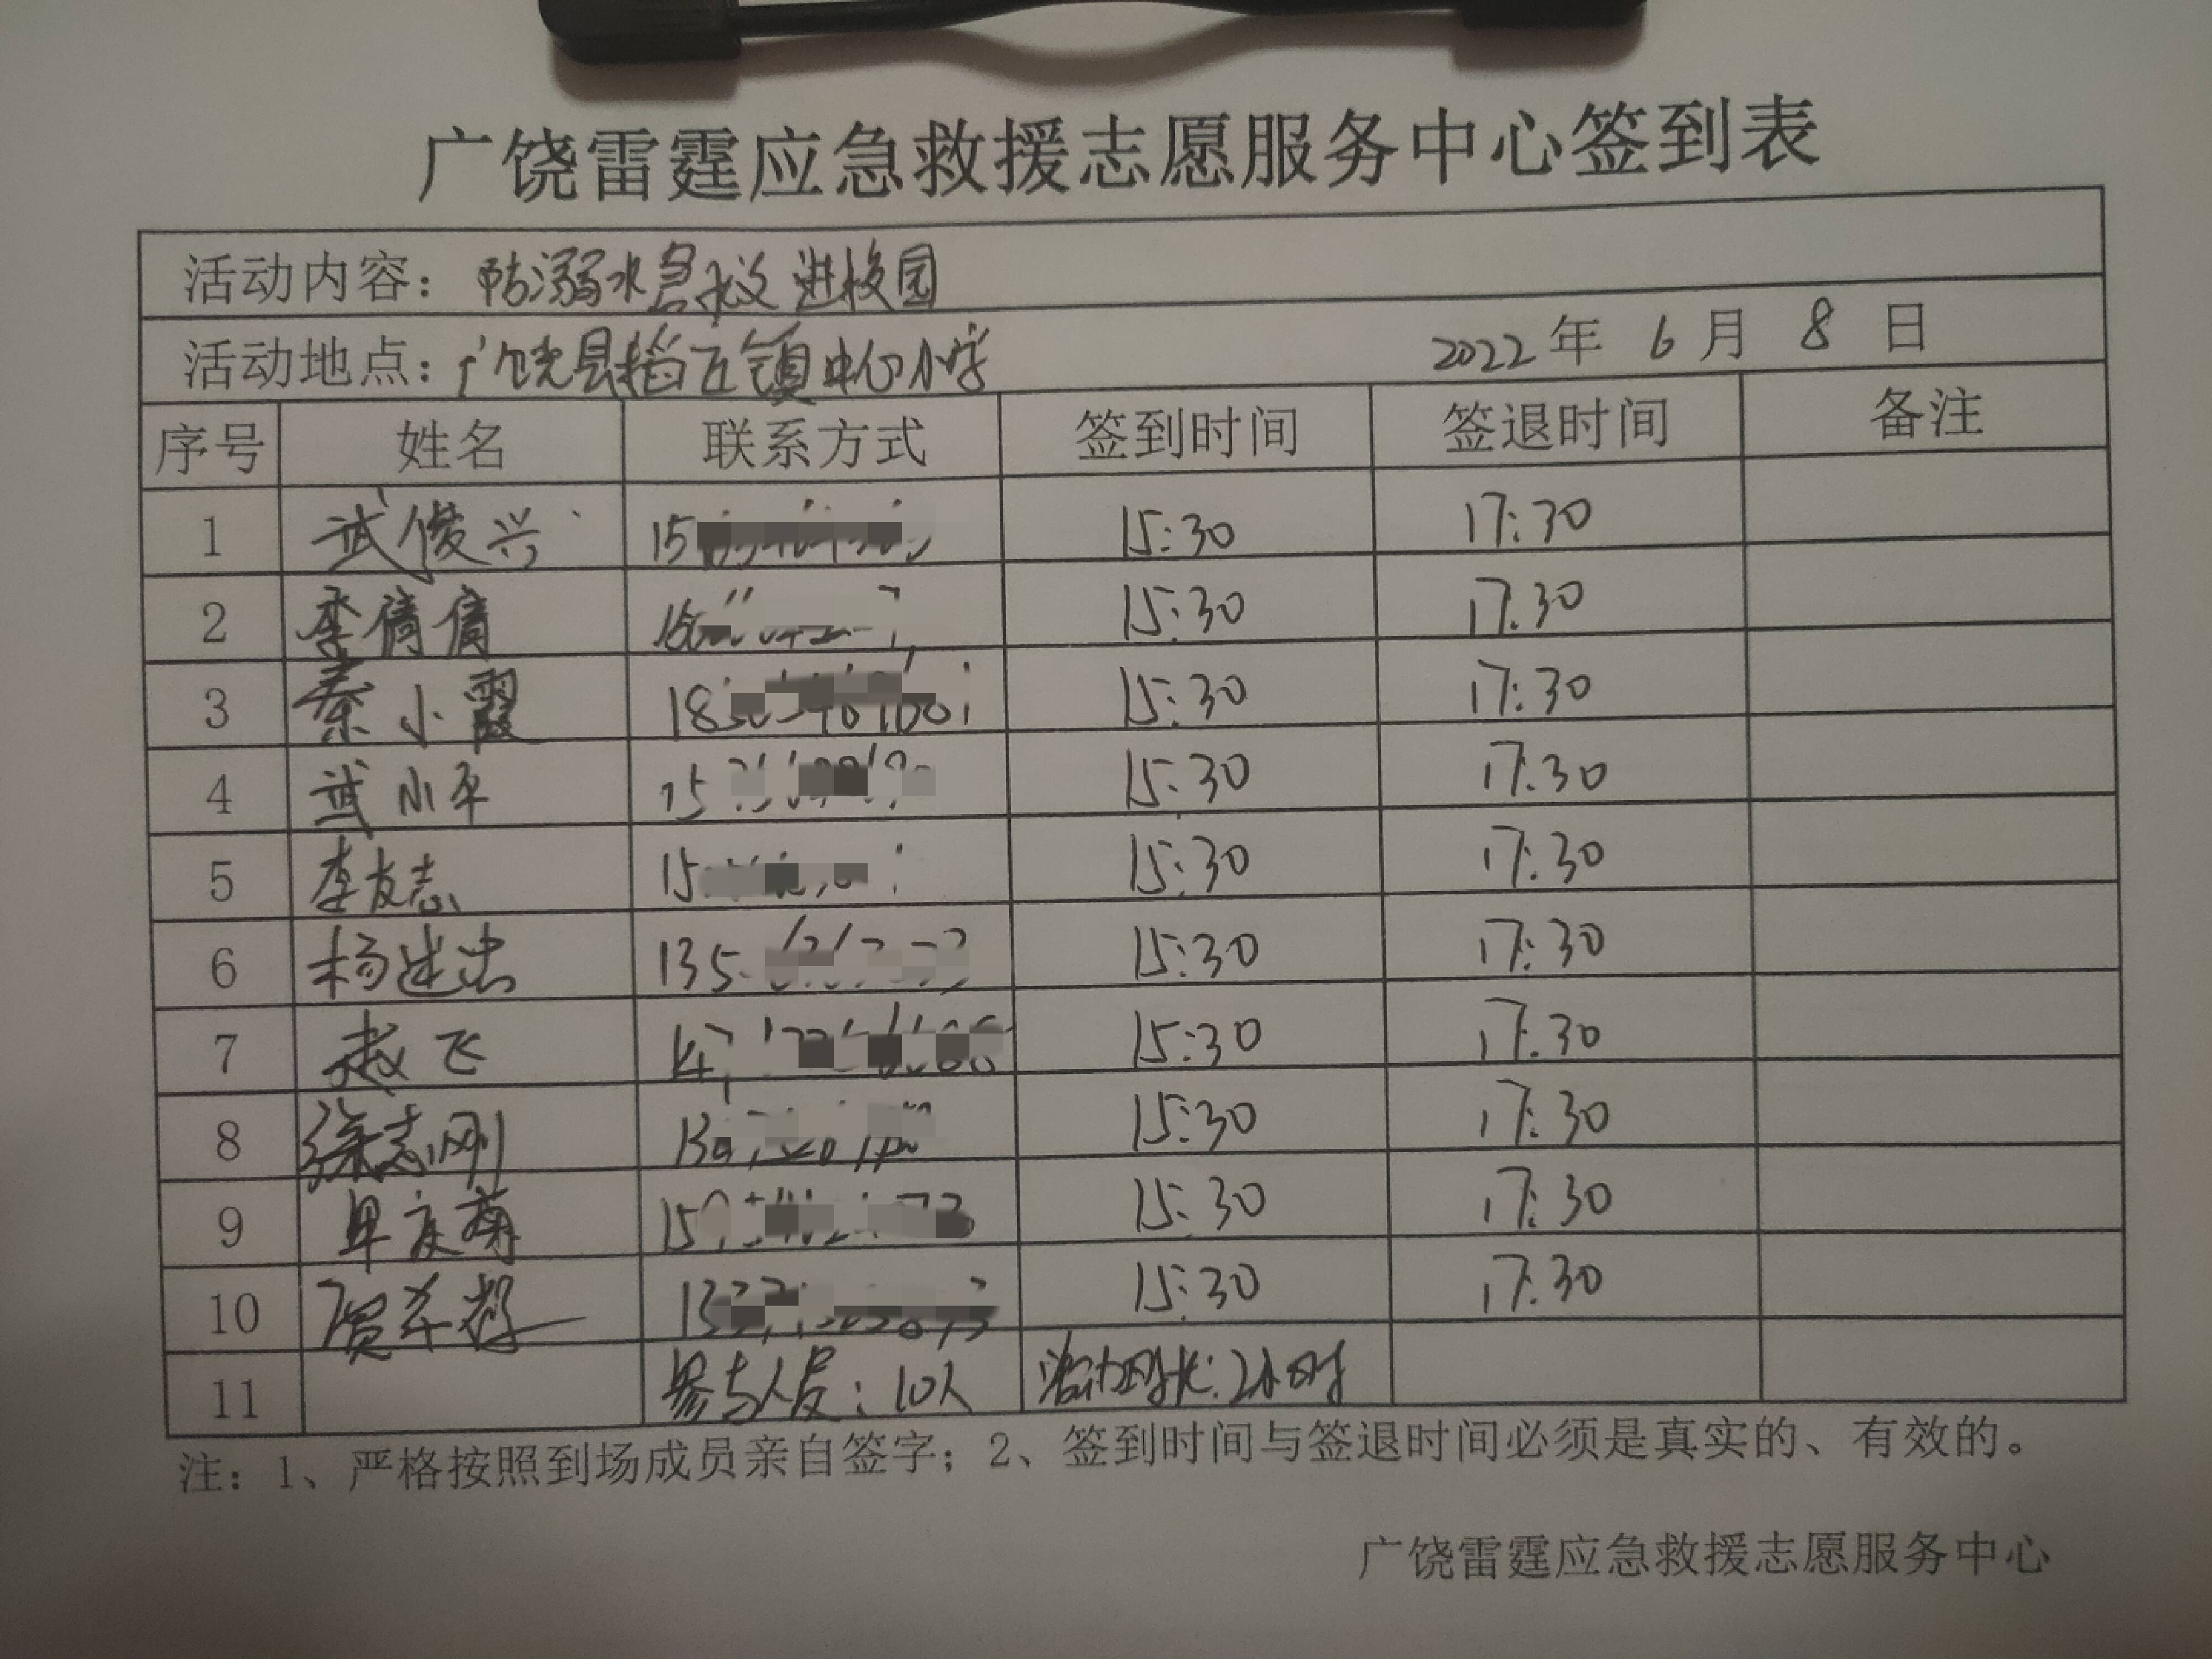 广饶雷霆应急救援志愿服务中心签到表
活动内容：防溺水急救进校园
活动地点：广饶县稻庄镇中心小学 2022年 6月 8日
序号 姓名 联系方式 签到时间 签退时间 备注
1 武俊兴 15 15:30 17:30
2 李倩倩 15:30 17:30
3 秦小霞 18 15:30 17:30
4 武小平 15 15:30 17:30
5 李友志 15 15:30 17:30
6 杨进忠 135 15:30 17:30
7 赵飞 15:30 17:30
8 徐志刚 15:30 17:30
9 15:30 17:30
10 15:30 17:30
11 参与人员：10人 活动时长：2小时
注：1、严格按照到场成员亲自签字；2、签到时间与签退时间必须是真实的、有效的。
广饶雷霆应急救援志愿服务中心